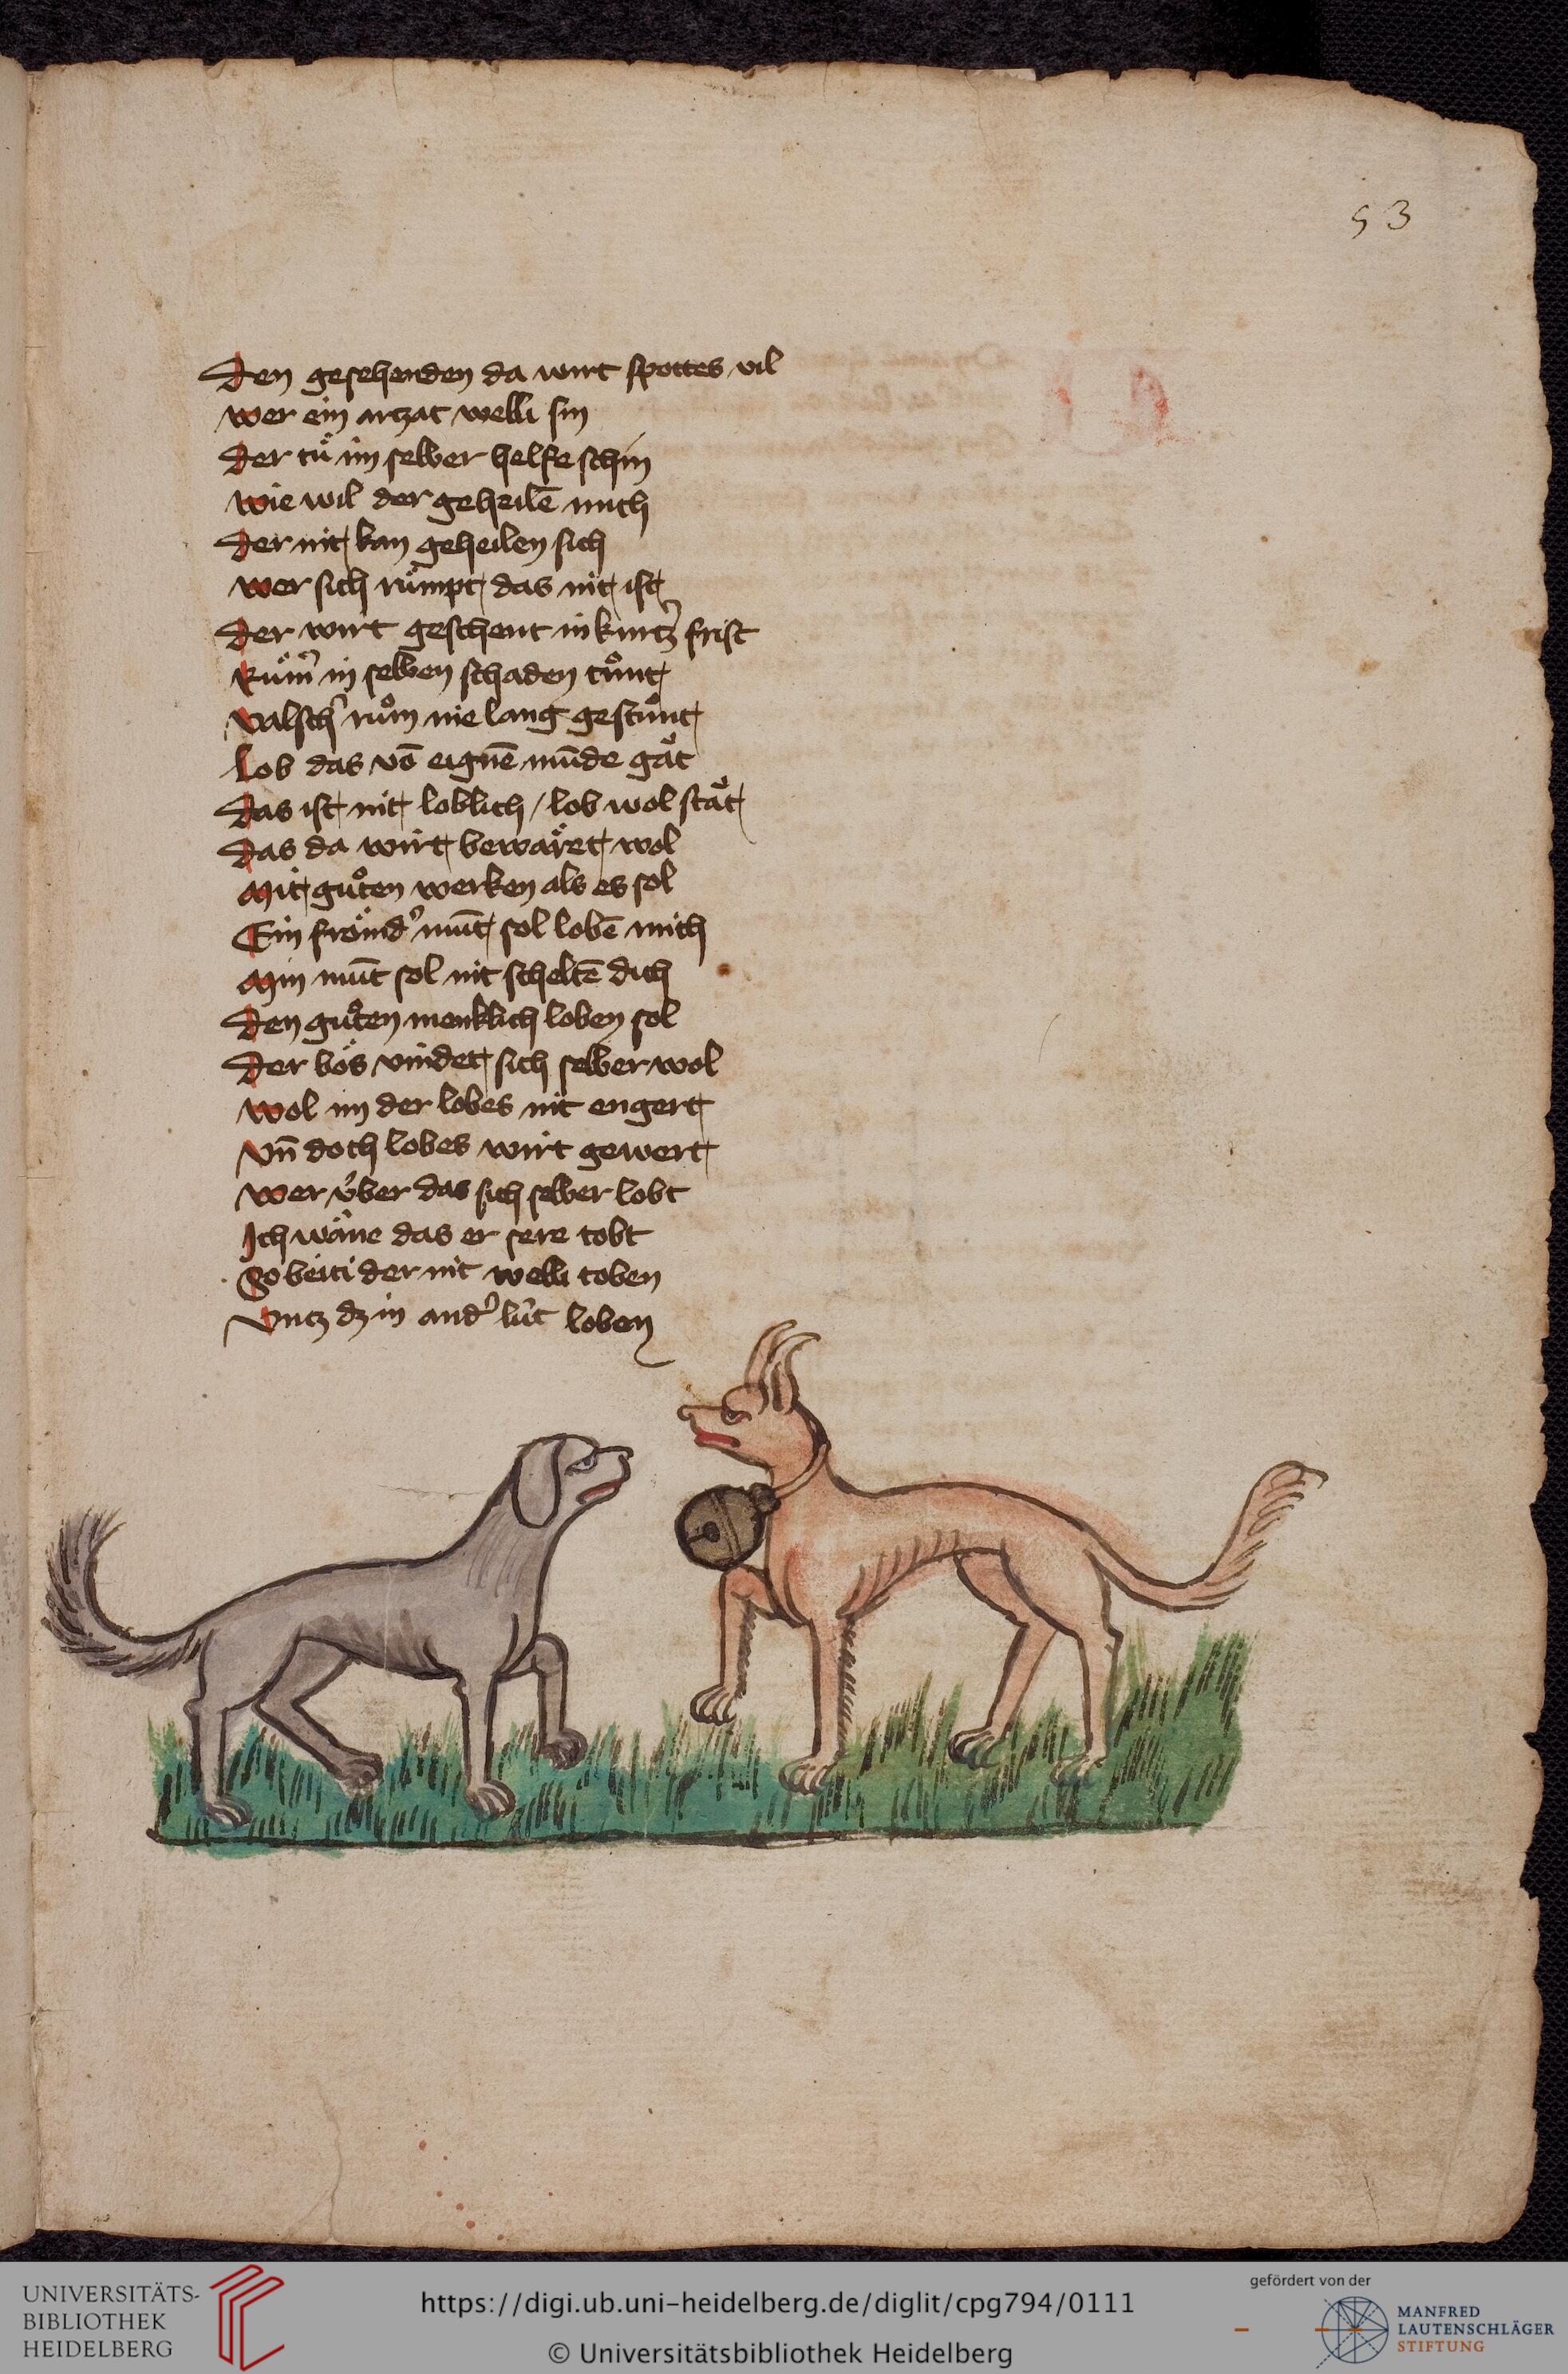 53
Den gesehenden da wirt spottes vil
wer ein artzat welli sin
Der tuͤ im selber helfe schin
wie wil der geheilē mich
Der nit kan geheilen sich
wer sich ruͤmpt das nit ist
Der wirt geschent in kurtzˀ frist
Ruͤmˀ in selben schaden tuͦnt
valschˀ ruͦm nie lang gestuͦnt
Lob das vō eignē mūde gaͤt
Das ist nit loblich / lob wol staͤt
Das da wirt bewaͤret wol
Mit guͦten werken als es sol
Ein froͤmdˀ mūt sol lobē mich
Min mūt sol nit scheltē dich
Den guͦten menklich loben sol
Der boͤs vindet sich selber wol
wol im der lobes nit engert
vn̄ doch lobes wirt gewert
wer v́ber das sich selber lobt
Ich waͤne das er sere tobt
So beiti der nit welli toben
Vntz dz in andˀ luͤt loben
UNIVERSITÄTS-
BIBLIOTHEK
HEIDELBERG
https://digi.ub.uni-heidelberg.de/diglit/cpg794/0111
© Universitätsbibliothek Heidelberg
gefördert von der
MANFRED
LAUTENSCHLÄGER
STIFTUNG